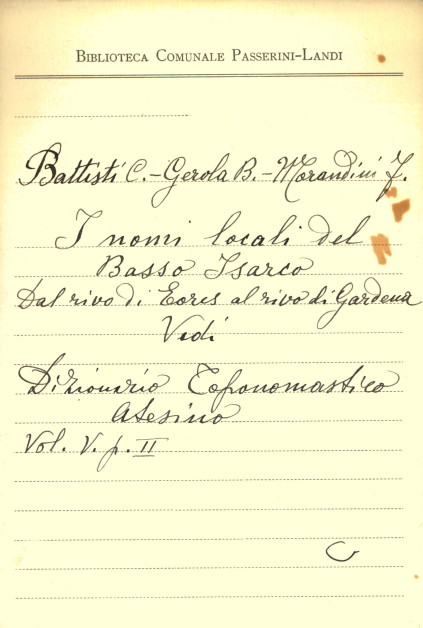 BIBLIOTECA COMUNALE PASSERINI-LANDI
Battisti C. - Gerola B. - Morandini F.
I nomi locali del
Basso Isarco
Dal rivo di Eores al rivo di Gardena
Vedi
Dizionario Toponomastico
Atesino
Vol. V. p. II
C